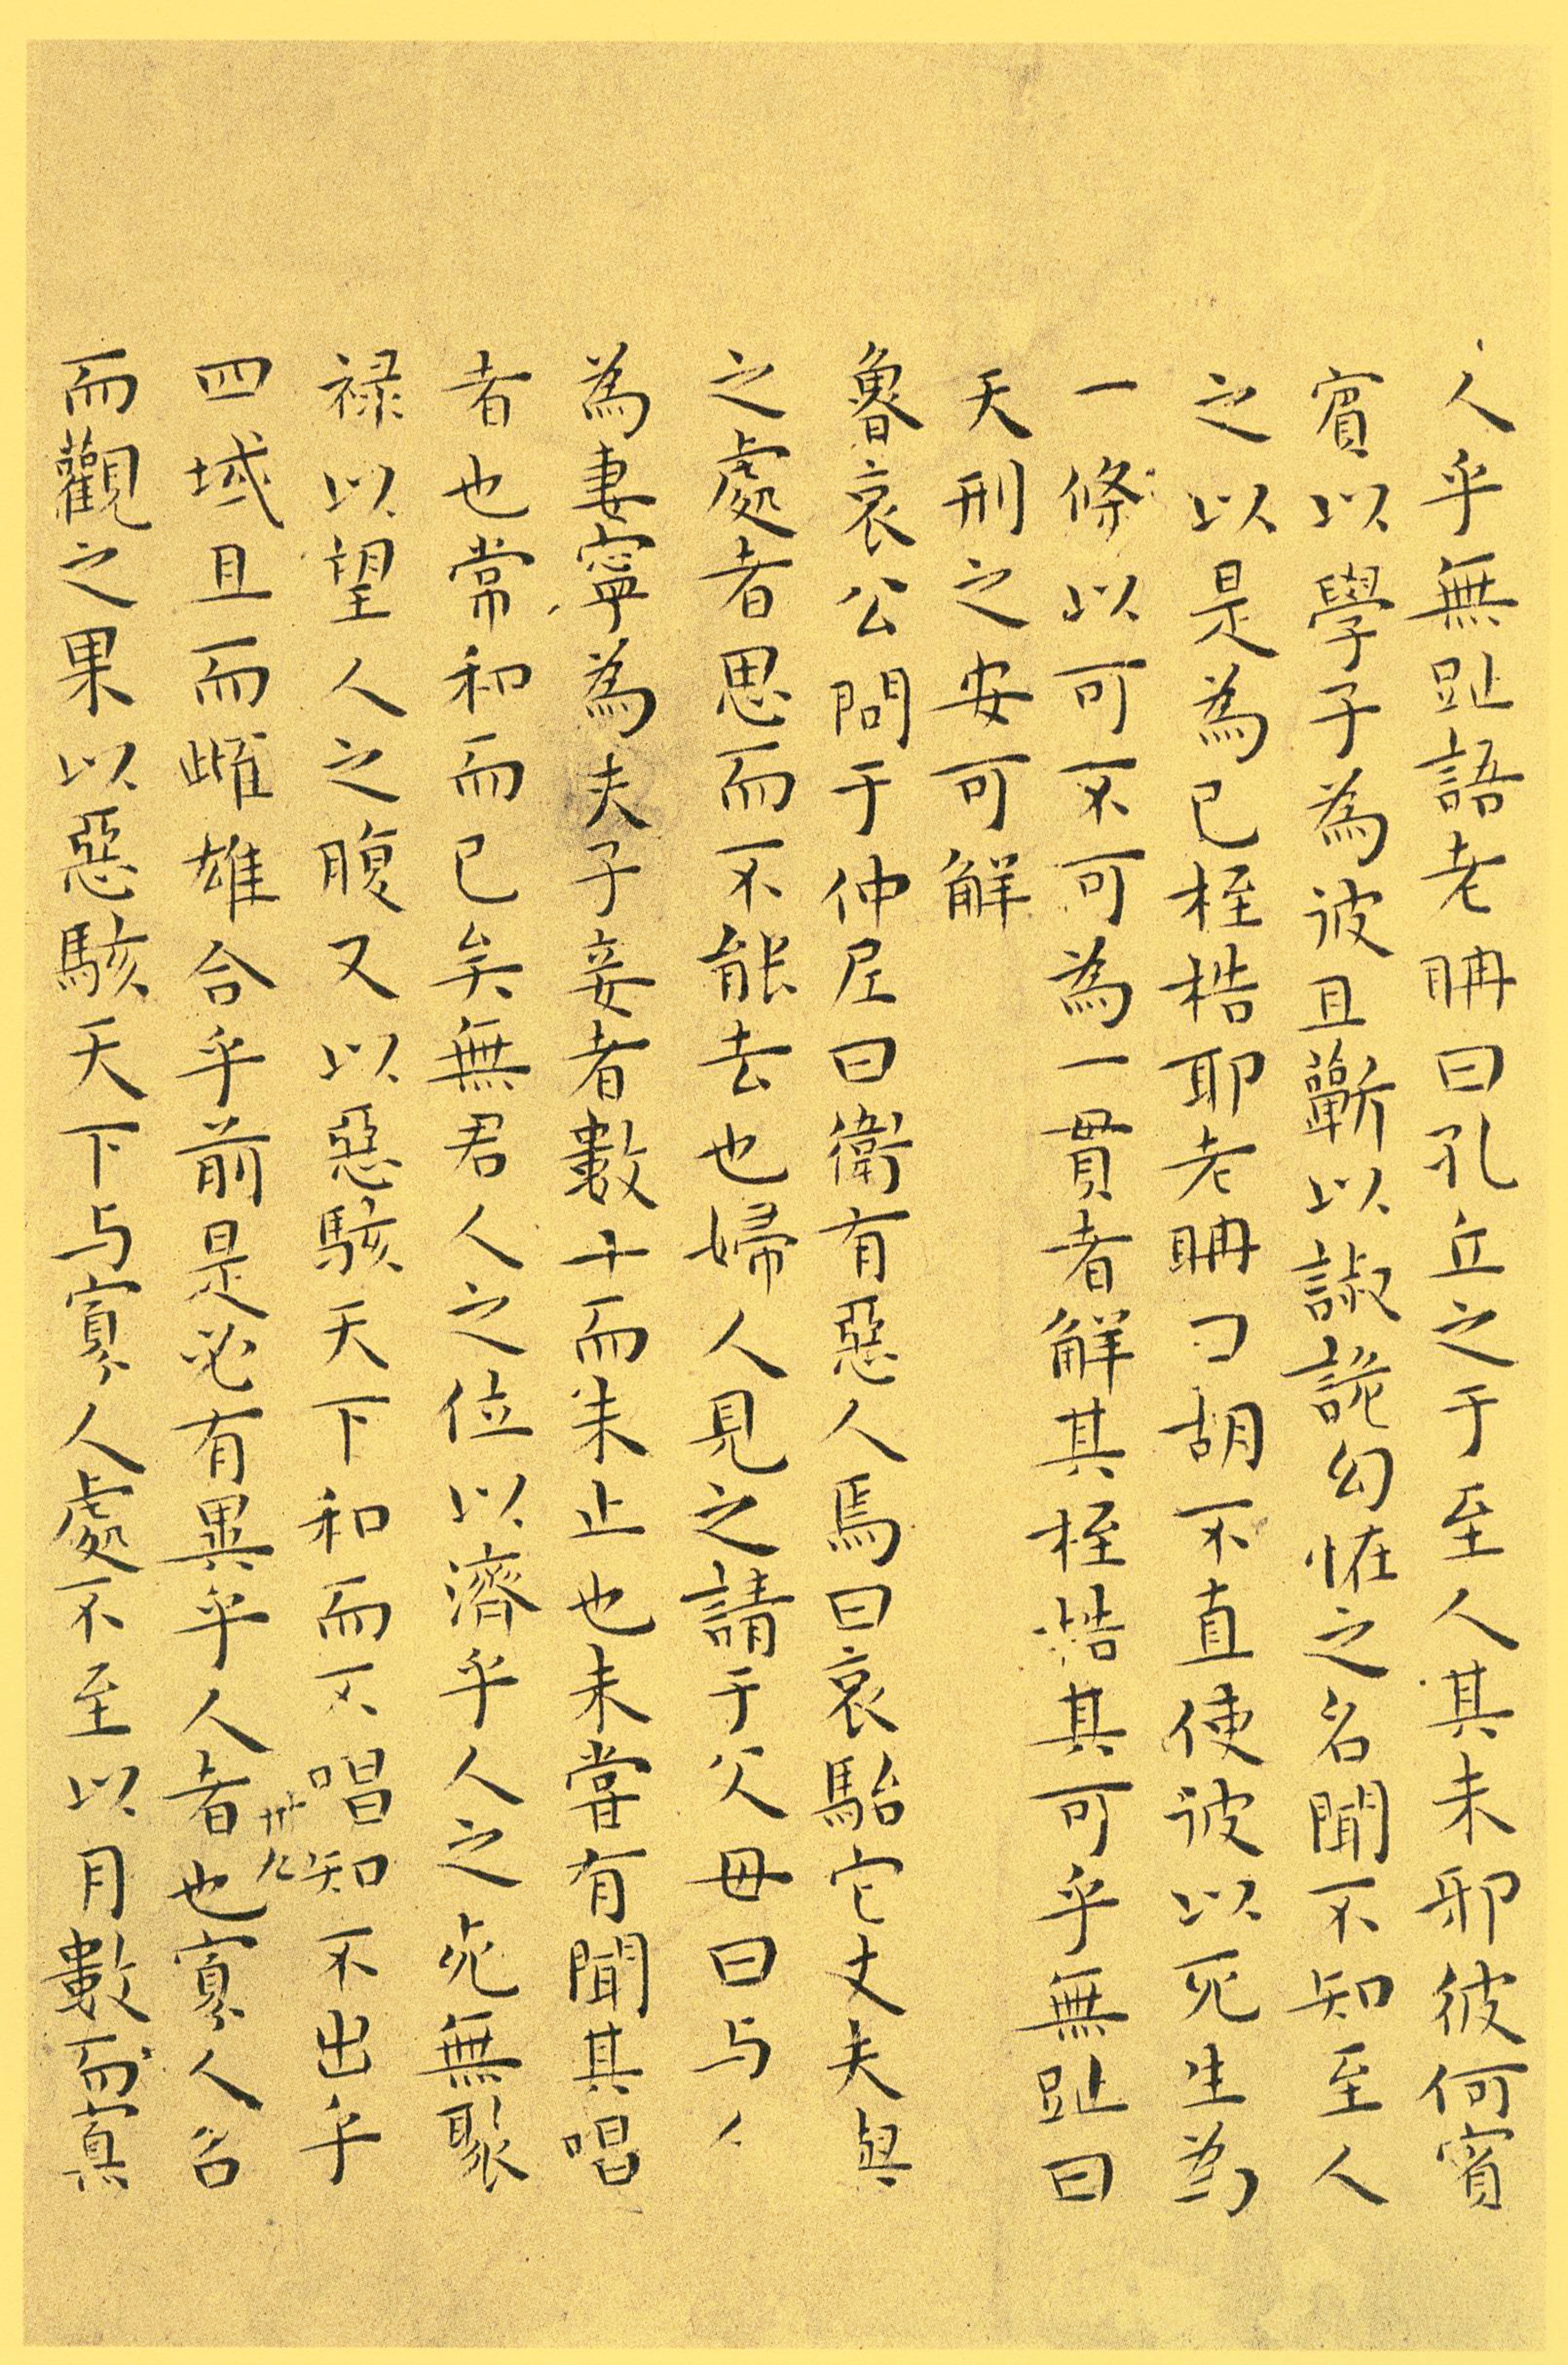 人乎無趾語老聃曰孔丘之于至人其未邪彼何賓
賓以學子為彼且蘄以諔詭幻怪之名聞不知至人
之以是為己桎梏耶老聃曰胡不直使彼以死生為
一條以可不可為一貫者解其桎梏其可乎無趾曰
天刑之安可解
魯哀公問于仲尼曰衛有惡人焉曰哀駘它丈夫與
之處者思而不能去也婦人見之請于父母曰与人
為妻寧為夫子妾者數十而未止也未嘗有聞其唱
者也常和而已矣無君人之位以濟乎人之死無聚
祿以望人之腹又以惡駭天下和而不唱知不出乎
四域且而雌雄合乎前是必有異乎人者也寡人召
而觀之果以惡駭天下与寡人處不至以月數而寡
卅九